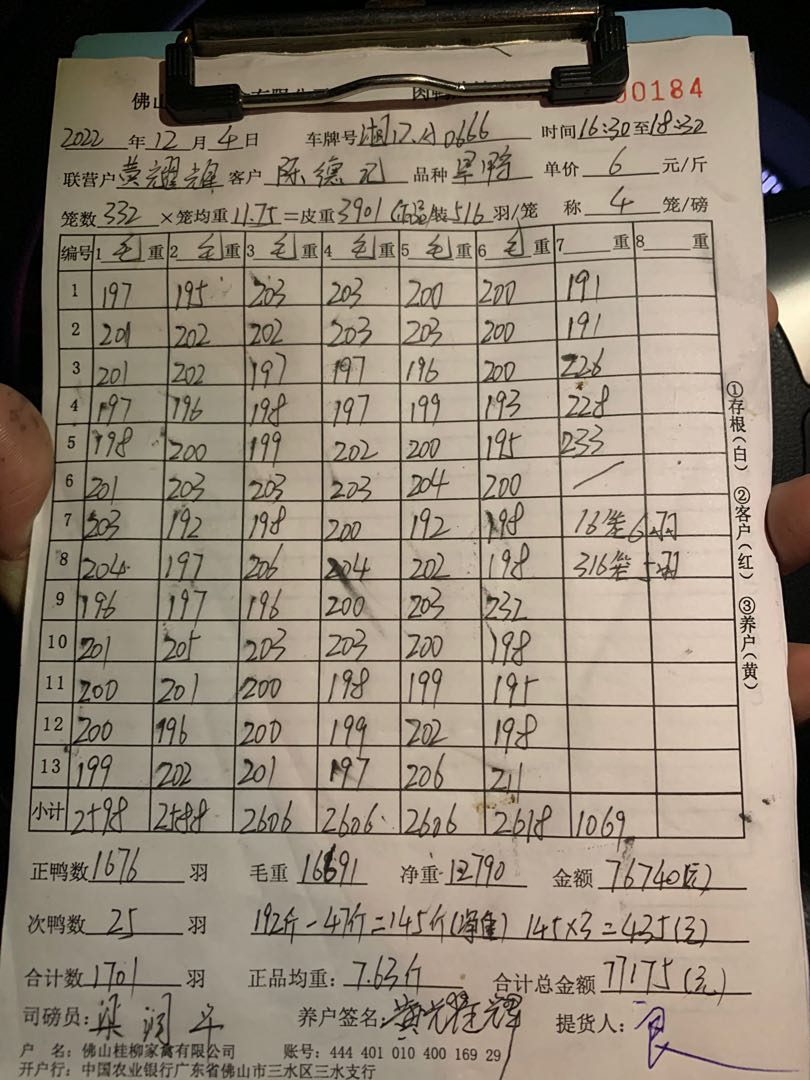 佛山 有限公司 肉鸭 00184
2022 年 12 月 4 日 车牌号 0666 时间 16:30 至 18:30
联营户 黄耀辉 客户 陈德 品种 单价 6 元/斤
笼数 332 ×笼均重 11.75 =皮重 3901 装 516 羽/笼 称 4 笼/磅
编号 1 毛 重 2 毛 重 3 毛 重 4 毛 重 5 毛 重 6 毛 重 7 重 8 重
1 197 195 203 203 200 200 191
2 201 202 202 203 203 200 191
3 201 202 197 197 196 200 226
4 197 196 198 197 199 193 228
5 198 200 199 202 200 195 233
6 201 203 203 203 204 200 /
7 203 192 198 200 192 198 16笼6羽
8 204 197 206 204 202 198 316笼5羽
9 196 197 196 200 203 232
10 201 205 203 203 200 198
11 200 201 200 198 199 195
12 200 196 200 199 202 198
13 199 202 201 197 206 211
小计 2598 2588 2606 2606 2606 2618 1069
正鸭数 1676 羽 毛重 16691 净重 12790 金额 76740(元)
次鸭数 25 羽 192斤-47斤=145斤(净重) 145×3=435(元)
合计数 1701 羽 正品均重: 7.63斤 合计总金额 77175(元)
司磅员: 梁润 养户签名: 黄耀辉 提货人:
户 名: 佛山桂柳家禽有限公司 账号: 444 401 010 400 169 29
开户行: 中国农业银行广东省佛山市三水区三水支行
①存根(白) ②客户(红) ③养户(黄)